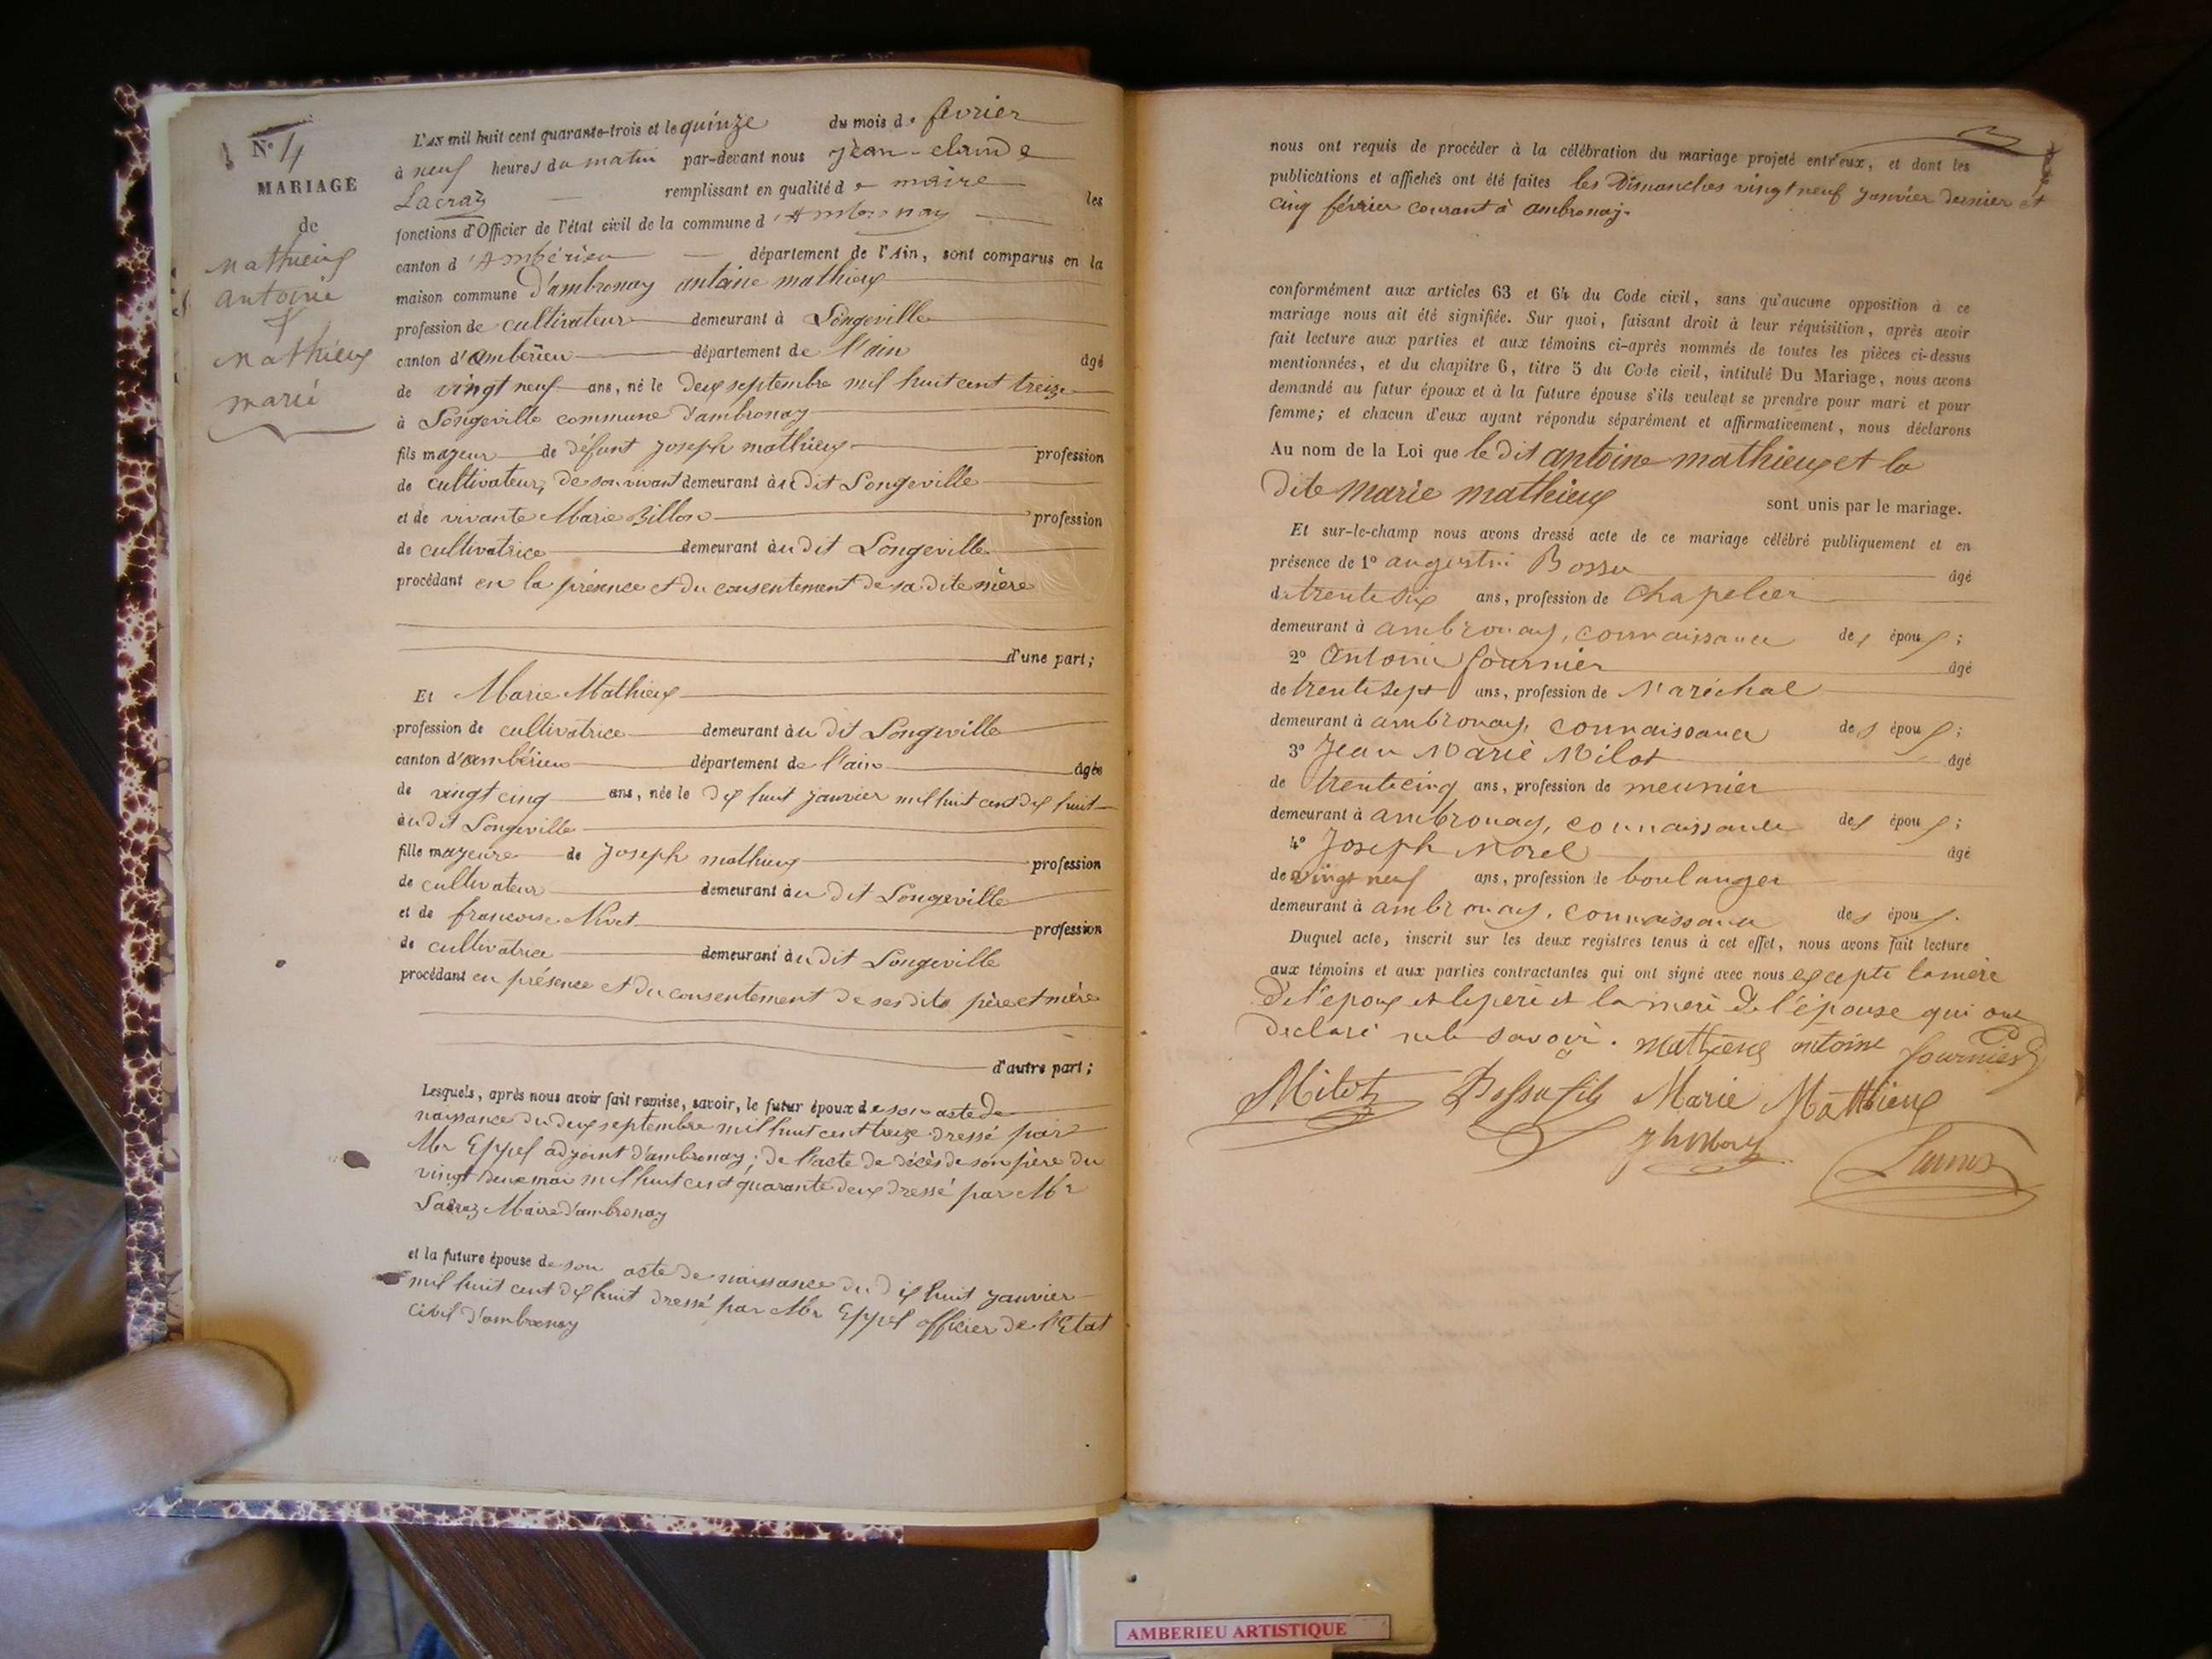 N° 4
MARIAGE
de
Mathieux
antoine
&
Mathieux
marie
L'an mil huit cent quarante-trois et le quinze du mois de fevrier
à neuf heures du matin par-devant nous jean-claude
Lacraz remplissant en qualité de maire les
fonctions d'Officier de l'état civil de la commune d'Ambronay
canton d'Ambérieu département de l'Ain, sont comparus en la
maison commune d'ambronay antoine mathieux
profession de cultivateur demeurant à Longeville
canton d'ambérieu département de l'ain âgé
de vingt neuf ans, né le deux septembre mil huit cent treize
à Longeville commune d'ambronay
fils majeur de défunt joseph mathieux profession
de cultivateur, de son vivant demeurant à udit Longeville
et de vivante Marie Billon profession
de cultivatrice demeurant à udit Longeville
procédant en la présence et du consentement de sa dite mère
d'une part;
Et Marie Mathieux
profession de cultivatrice demeurant à udit Longeville
canton d'ambérieu département de l'ain âgée
de vingt cinq ans, née le dix huit janvier mil huit cent dix huit
à udit Longeville
fille majeure de joseph mathieux profession
de cultivateur demeurant à udit Longeville
et de francoise Nivet profession
de cultivatrice demeurant à udit Longeville
procédant en présence et du consentement de ses dits père et mère
d'autre part;
Lesquels, après nous avoir fait remise, savoir, le futur époux de son acte de
naissance du deux septembre mil huit cent treize dressé par
Mr Eppel adjoint d'ambronay; de l'acte de décès de son père du
vingt deux mai mil huit cent quarante deux dressé par Mr
Lacraz Maire d'ambronay
et la future épouse de son acte de naissance du dix huit janvier
mil huit cent dix huit dressé par Mr Eppel officier de l'Etat
civil d'ambronay
nous ont requis de procéder à la célébration du mariage projeté entr'eux, et dont les
publications et affichés ont été faites les Dimanches vingt neuf janvier dernier et
cinq février courant à ambronay.
conformément aux articles 63 et 64 du Code civil, sans qu'aucune opposition à ce
mariage nous ait été signifiée. Sur quoi, faisant droit à leur réquisition, après avoir
fait lecture aux parties et aux témoins ci-après nommés de toutes les pièces ci-dessus
mentionnées, et du chapitre 6, titre 5 du Code civil, intitulé Du Mariage, nous avons
demandé au futur époux et à la future épouse s'ils veulent se prendre pour mari et pour
femme; et chacun d'eux ayant répondu séparément et affirmativement, nous déclarons
Au nom de la Loi que le dit antoine mathieux et la
dite marie mathieux sont unis par le mariage.
Et sur-le-champ nous avons dressé acte de ce mariage célébré publiquement et en
présence de 1° augustin Bossu âgé
de trente six ans, profession de chapelier
demeurant à ambronay, connaissance des époux;
2° antoine fournier âgé
de trente sept ans, profession de Maréchal
demeurant à ambronay, connaissance des époux;
3° Jean Marie Milot âgé
de trente cinq ans, profession de meunier
demeurant à ambronay, connaissance des époux;
4° Joseph Morel âgé
de vingt neuf ans, profession de boulanger
demeurant à ambronay, connaissance des époux.
Duquel acte, inscrit sur les deux registres tenus à cet effet, nous avons fait lecture
aux témoins et aux parties contractantes qui ont signé avec nous excepté la mère
de l'epoux et le père et la mere de l'épouse qui ont
declaré ne le savoir. mathieux antoine fournier
Milot Bossu fils Marie Matthieux
AMBERIEU ARTISTIQUE